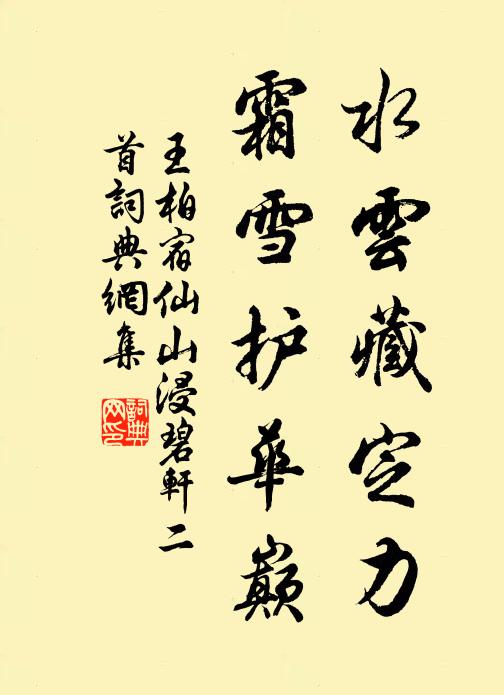 水雲藏定力
霜雪护華巔
王柏宿仙山浸碧軒二
首詞典網集
詞典
网印